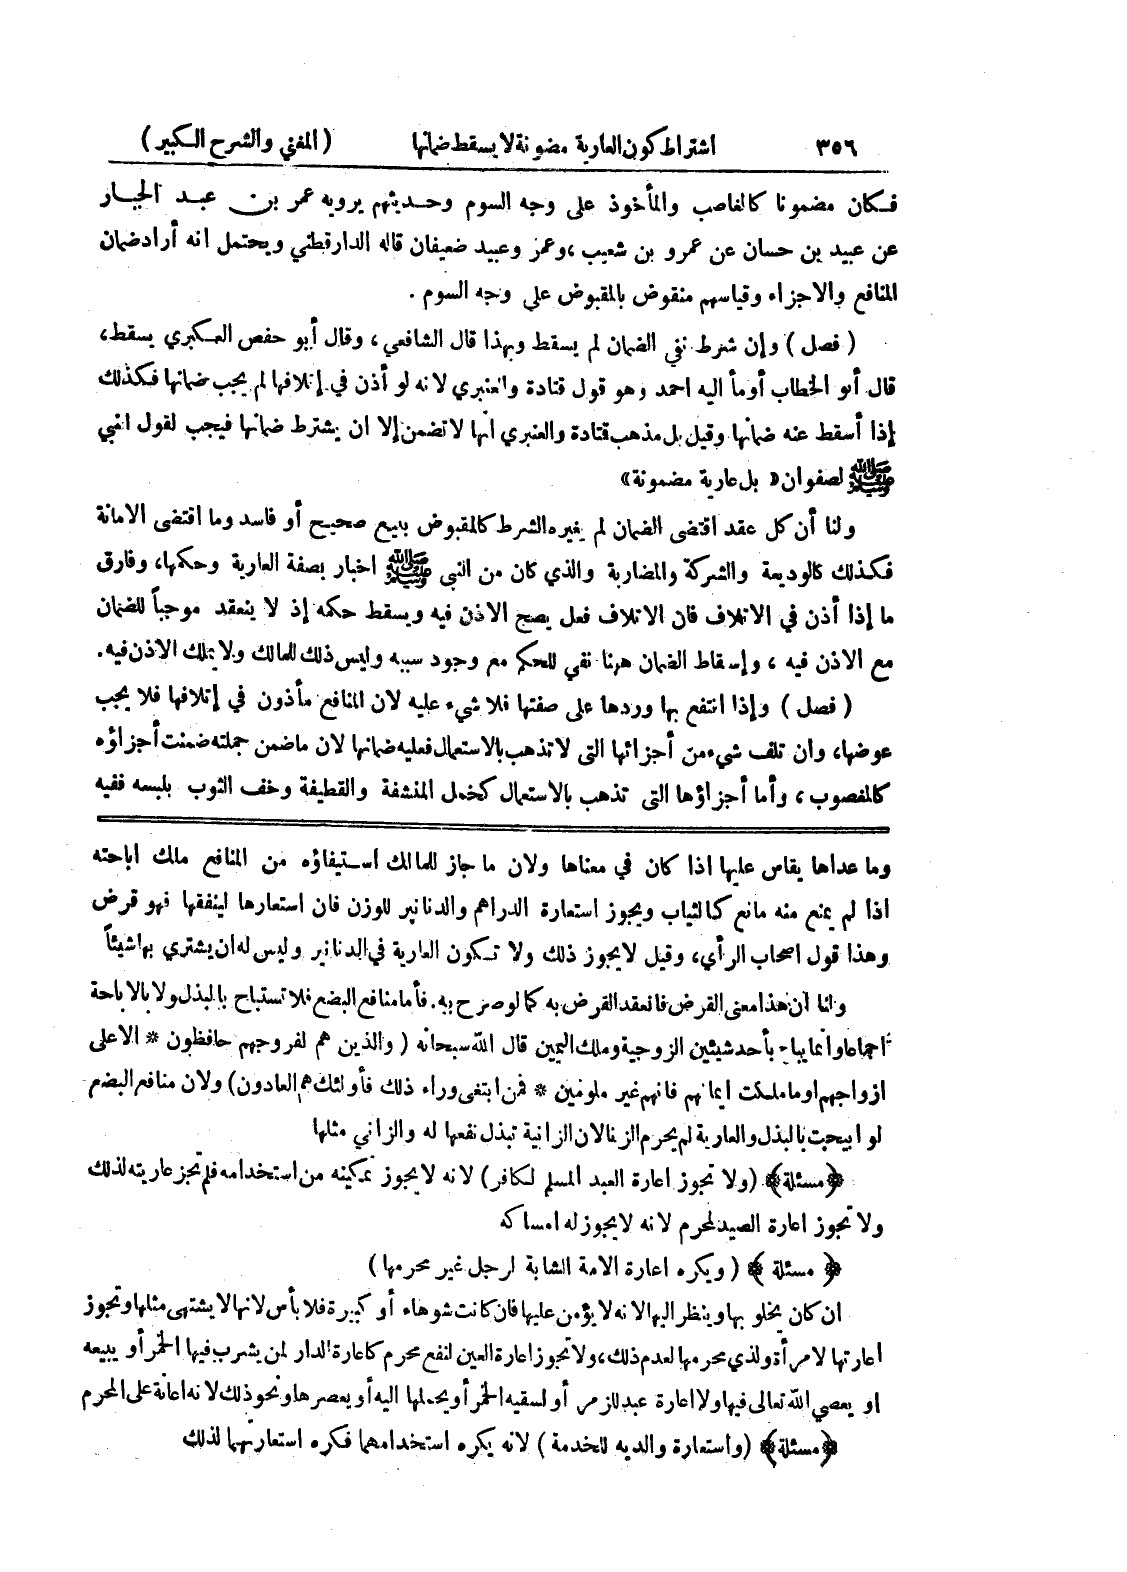 ٣٥٦ اشتراط كون العارية مضمونة لا يسقط ضمانها (المغني والشرح الكبير)
فكان مضمونا كالغاصب والمأخوذ على وجه السوم وحديثهم يرويه عمر بن عبد الجبار
عن عبيد بن حسان عن عمرو بن شعيب ، وعمر وعبيد ضعيفان قاله الدارقطني ويحتمل انه أراد ضمان
المنافع والاجزاء وقياسهم منقوض بالمقبوض على وجه السوم .
( فصل ) وإن شرط نفي الضمان لم يسقط وبهذا قال الشافعي ، وقال أبو حفص العكبري يسقط ،
قال أبو الخطاب أومأ اليه احمد وهو قول قتادة والعنبري لانه لو أذن في إتلافها لم يجب ضمانها فكذلك
إذا أسقط عنه ضمانها وقيل بل مذهب قتادة والعنبري انها لا تضمن إلا ان يشترط ضمانها فيجب لقول النبي
ﷺ لصفوان « بل عارية مضمونة »
ولنا أن كل عقد اقتضى الضمان لم يغيره الشرط كالمقبوض ببيع صحيح أو فاسد وما اقتضى الامانة
فكذلك كالوديعة والشركة والمضاربة والذي كان من النبي ﷺ اخبار بصفة العارية وحكمها ، وفارق
ما إذا أذن في الاتلاف فان الاتلاف فعل يصح الاذن فيه ويسقط حكمه إذ لا ينعقد موجباً للضمان
مع الاذن فيه ، وإسقاط الضمان ههنا نفي للحكم مع وجود سببه وليس ذلك للمالك ولا يملك الاذن فيه .
( فصل ) وإذا انتفع بها وردها على صفتها فلا شيء عليه لان المنافع مأذون في إتلافها فلا يجب
عوضها ، وان تلف شيء من أجزائها التي لا تذهب بالاستعمال فعليه ضمانها لان ما ضمن جملته ضمنت أجزاؤه
كالمغصوب ، وأما أجزاؤها التي تذهب بالاستعمال كخمل المنشفة والقطيفة وخف الثوب بلبسه ففيه
وما عداها يقاس عليها اذا كان في معناها ولان ما جاز للمالك استيفاؤه من المنافع ملك اباحته
اذا لم يمنع منه مانع كالثياب ويجوز استعارة الدراهم والدنانير للوزن فان استعارها لينفقها فهو قرض
وهذا قول اصحاب الرأي ، وقيل لا يجوز ذلك ولا تكون العارية في الدنانير وليس له ان يشتري بها شيئاً
ولنا أن هذا معنى القرض فانعقد القرض به كما لو صرح به . فأما منافع البضع فلا تستباح بالبذل ولا بالاباحة
اجماعا وانما يباح بأحد شيئين الزوجية وملك اليمين قال الله سبحانه ( والذين هم لفروجهم حافظون * الا على
ازواجهم او ما ملكت ايمانهم فانهم غير ملومين * فمن ابتغى وراء ذلك فأولئك هم العادون ) ولان منافع البضع
لو ابيحت بالبذل والعارية لم يحرم الزنا لان الزانية تبذل نفعها له والزاني مثلها
﴿مسئلة﴾ (ولا تجوز اعارة العبد المسلم لكافر) لانه لا يجوز تمكينه من استخدامه فلم تجز عاريته لذلك
ولا تجوز اعارة الصيد لمحرم لانه لا يجوز له امساكه
﴿ مسئلة ﴾ ( ويكره اعارة الامة الشابة لرجل غير محرمها )
ان كان يخلو بها وينظر اليها لانه لا يؤمن عليها فان كانت شوهاء أو كبيرة فلا بأس لانها لا يشتهى مثلها وتجوز
اعارتها لامرأة ولذي محرمها لعدم ذلك ، ولا تجوز اعارة العين لنفع محرم كاعارة الدار لمن يشرب فيها الخمر أو يبيعه
او يعصي الله تعالى فيها ولا اعارة عبد للزمر أو لسقيه الخمر أو يحملها اليه أو يعصرها ونحو ذلك لانه اعانة على المحرم
﴿مسئلة﴾ (واستعارة والديه للخدمة ) لانه يكره استخدامهما فكره استعارتهما لذلك